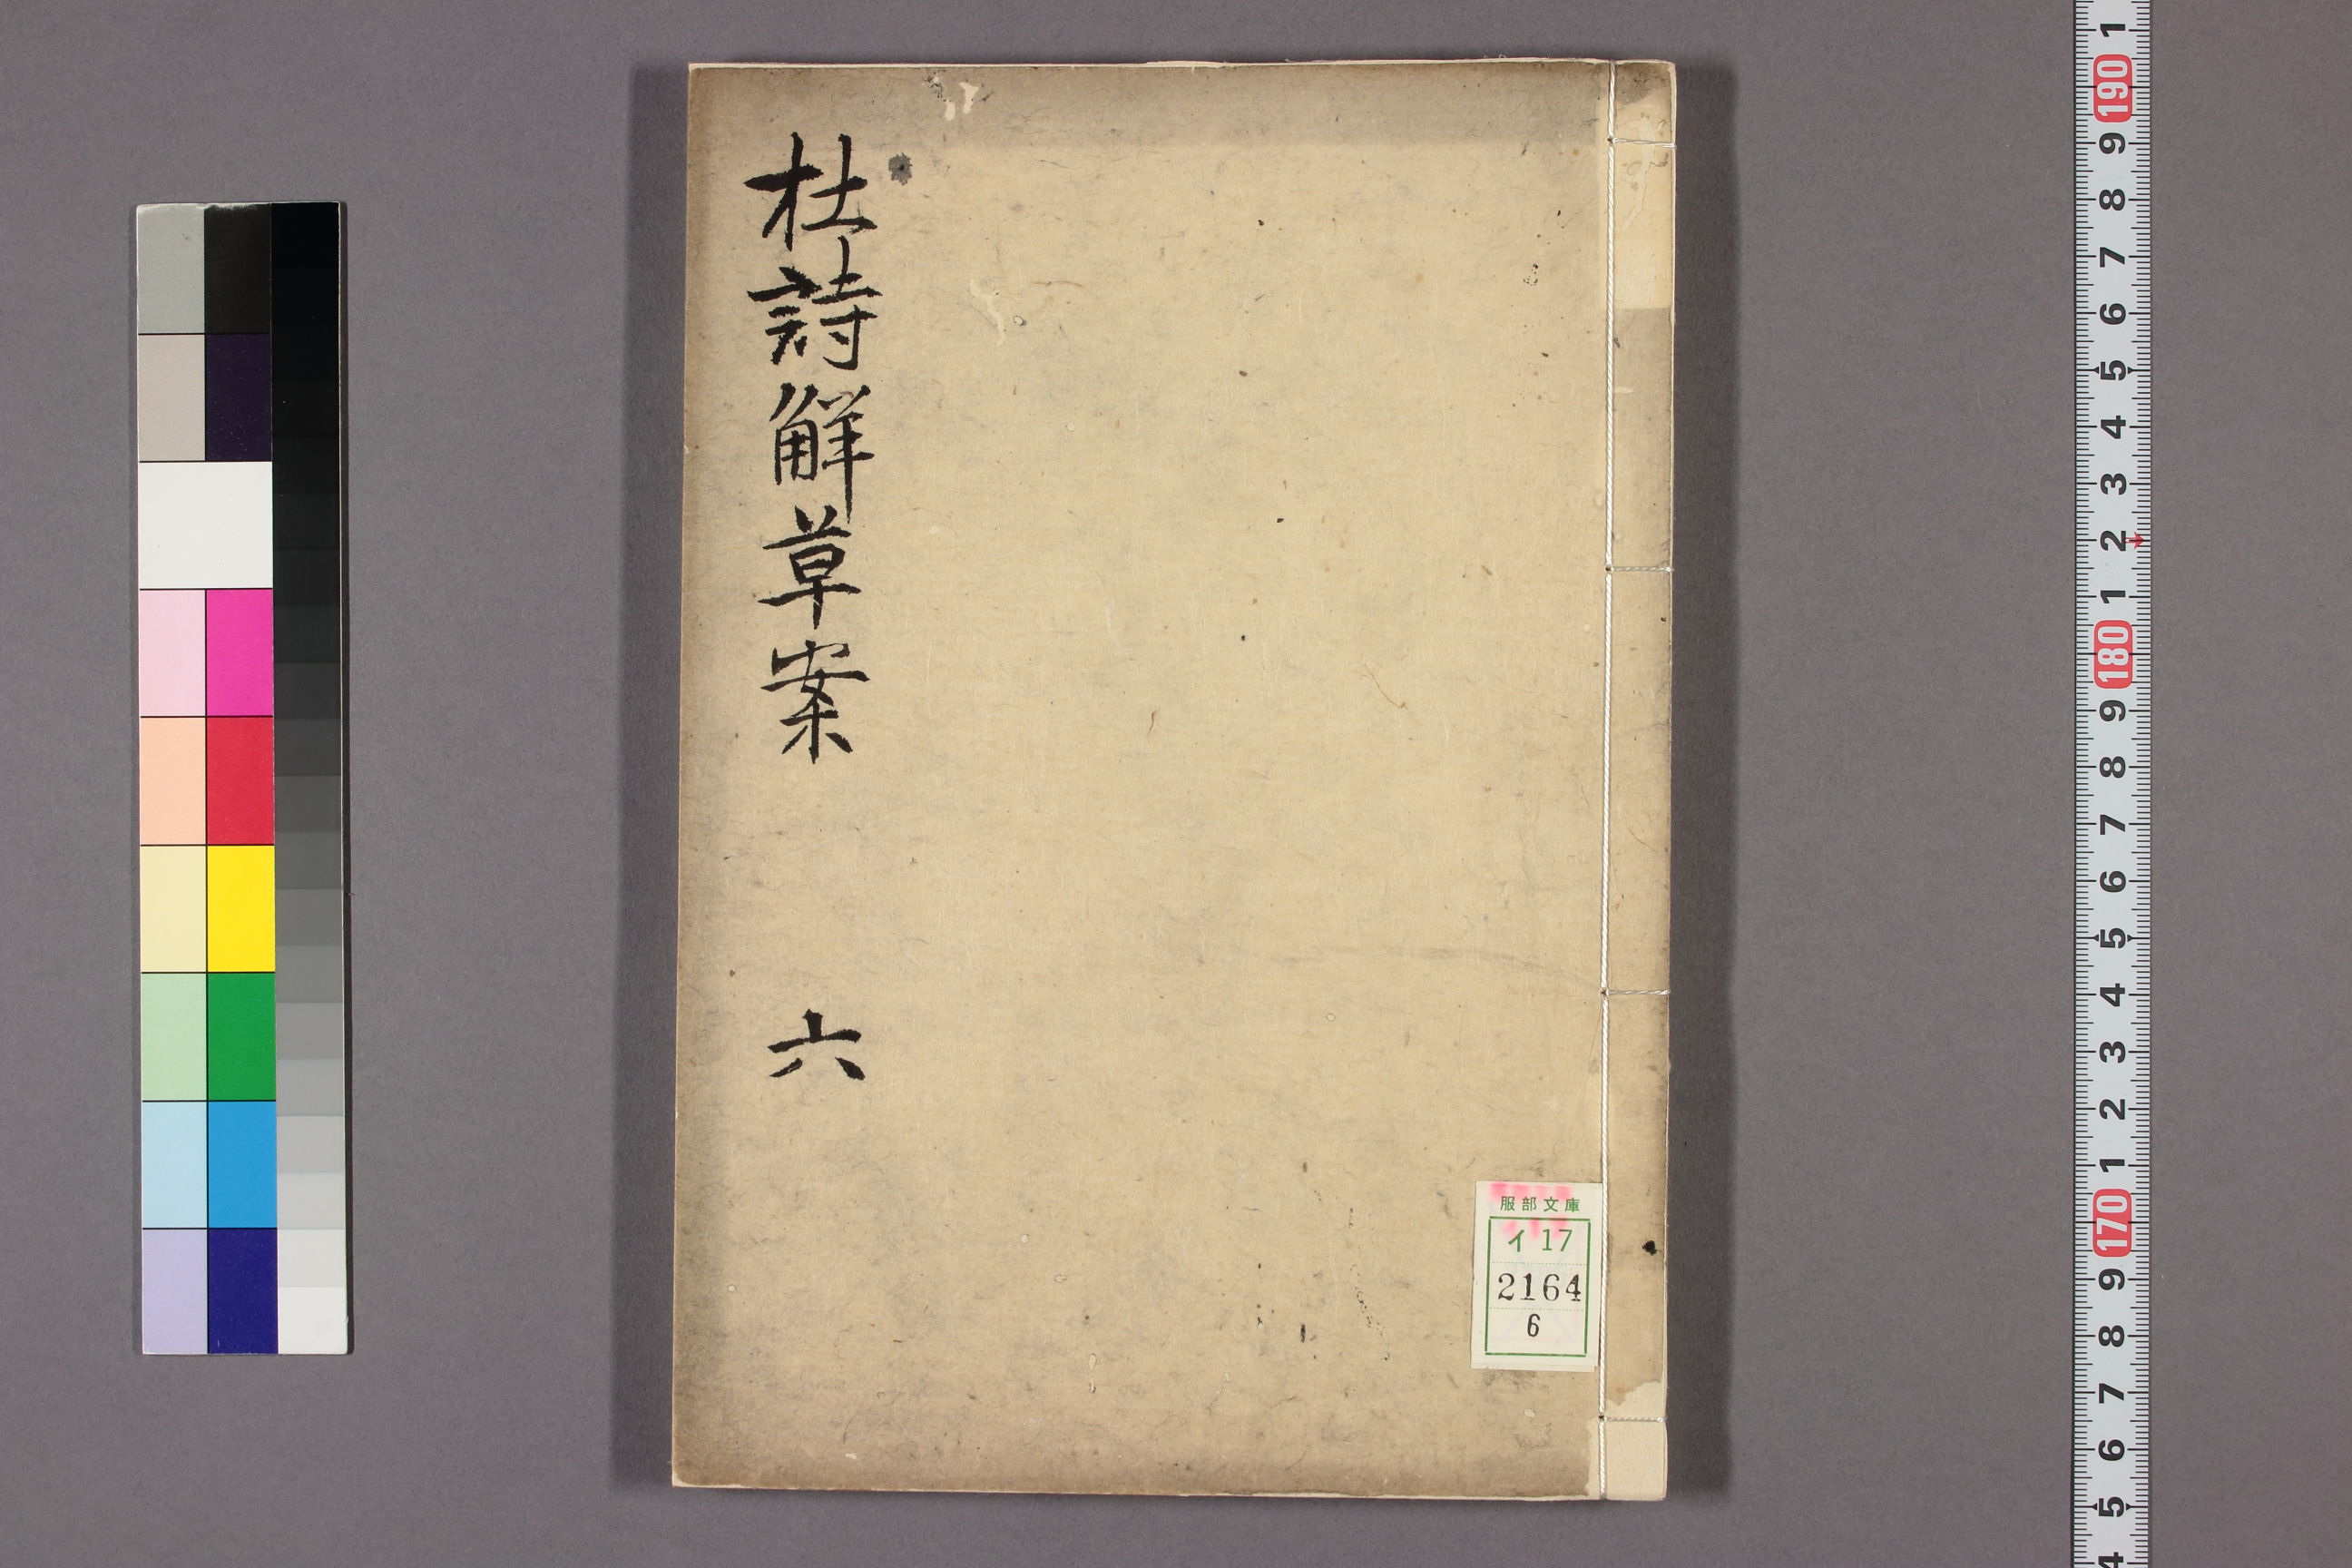 杜詩觧草案　六
服部文庫
イ 17
2164
6
1
190
9
8
7
6
5
4
3
2
1
180
9
8
7
6
5
4
3
2
1
170
9
8
7
6
5
4